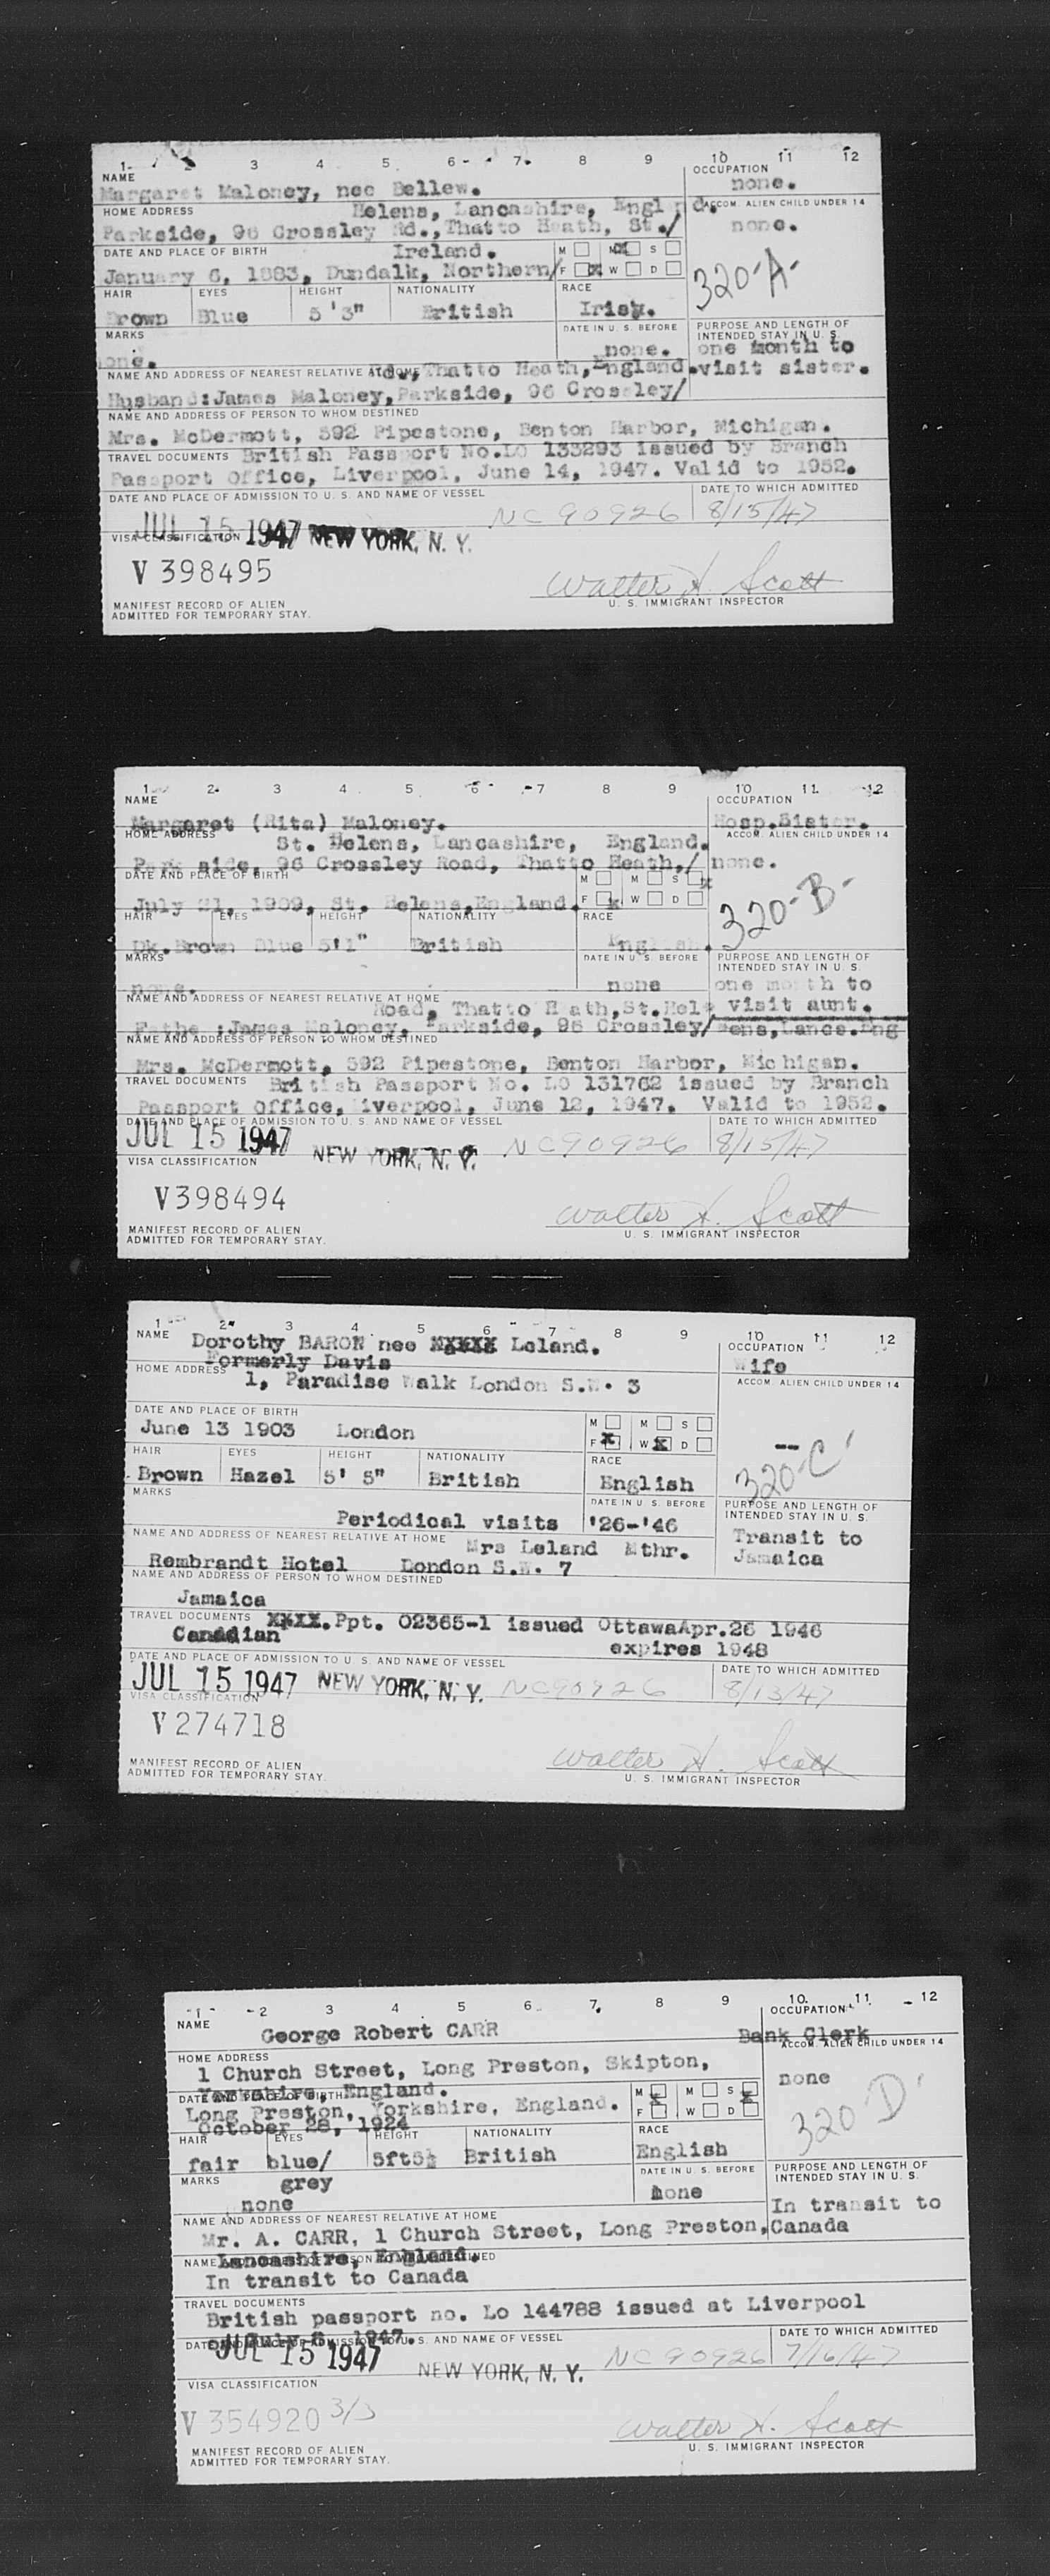 1 3 4 5 6 7 8 9 10 11 12
NAME
Margaret Maloney, nee Bellew.
OCCUPATION
none.
HOME ADDRESS
Helens, Lancashire, England.
Parkside, 96 Crossley Rd., Thatto Heath, St./
ACCOM. ALIEN CHILD UNDER 14
none.
DATE AND PLACE OF BIRTH
Ireland.
January 6, 1883, Dundalk, Northern/
M M S
F x W D
320-A-
HAIR EYES HEIGHT NATIONALITY RACE
Brown Blue 5'3" British Irish.
MARKS
none.
DATE IN U. S. BEFORE
none.
PURPOSE AND LENGTH OF
INTENDED STAY IN U. S.
one month to
visit sister.
NAME AND ADDRESS OF NEAREST RELATIVE AT HOME
d., Thatto Heath, England.
Husband: James Maloney, Parkside, 96 Crossley/
NAME AND ADDRESS OF PERSON TO WHOM DESTINED
Mrs. McDermott, 592 Pipestone, Benton Harbor, Michigan.
TRAVEL DOCUMENTS British Passport No. LO 133293 issued by Branch
Passport Office, Liverpool, June 14, 1947. Valid to 1952.
DATE AND PLACE OF ADMISSION TO U. S. AND NAME OF VESSEL
DATE TO WHICH ADMITTED
JUL 15 1947 NEW YORK, N. Y. NC 90926 8/15/47
VISA CLASSIFICATION
V 398495
Walter H. Scott
U. S. IMMIGRANT INSPECTOR
MANIFEST RECORD OF ALIEN
ADMITTED FOR TEMPORARY STAY.
1 2 3 4 5 6 7 8 9 10 11 12
NAME
Margaret (Rita) Maloney.
OCCUPATION
Hosp. Sister.
HOME ADDRESS
St. Helens, Lancashire, England.
Park side, 96 Crossley Road, Thatto Heath,/
ACCOM. ALIEN CHILD UNDER 14
none.
DATE AND PLACE OF BIRTH
July 21, 1909, St. Helens, England.
M M S x
F x W D
320-B-
HAIR EYES HEIGHT NATIONALITY RACE
Dk. Brown Blue 5'1" British English.
MARKS
none.
DATE IN U. S. BEFORE
none
PURPOSE AND LENGTH OF
INTENDED STAY IN U. S.
one month to
visit aunt.
NAME AND ADDRESS OF NEAREST RELATIVE AT HOME
Road, Thatto Heath, St. Hel
Father: James Maloney, Parkside, 96 Crossley/ ens, Lancs. Eng
NAME AND ADDRESS OF PERSON TO WHOM DESTINED
Mrs. McDermott, 592 Pipestone, Benton Harbor, Michigan.
TRAVEL DOCUMENTS British Passport No. LO 131762 issued by Branch
Passport Office, Liverpool, June 12, 1947. Valid to 1952.
DATE AND PLACE OF ADMISSION TO U. S. AND NAME OF VESSEL
DATE TO WHICH ADMITTED
JUL 15 1947 NEW YORK, N. Y. NC90926 8/15/47
VISA CLASSIFICATION
V398494
Walter H. Scott
U. S. IMMIGRANT INSPECTOR
MANIFEST RECORD OF ALIEN
ADMITTED FOR TEMPORARY STAY.
1 2 3 4 5 6 7 8 9 10 11 12
NAME Dorothy BARON nee Leland.
Formerly Davis
OCCUPATION
Wife
HOME ADDRESS
1, Paradise Walk London S.W. 3
ACCOM. ALIEN CHILD UNDER 14
--
DATE AND PLACE OF BIRTH
June 13 1903 London
M M S
F x W x D
320-C
HAIR EYES HEIGHT NATIONALITY RACE
Brown Hazel 5' 5" British English
MARKS
DATE IN U. S. BEFORE
Periodical visits '26-'46
PURPOSE AND LENGTH OF
INTENDED STAY IN U. S.
Transit to
Jamaica
NAME AND ADDRESS OF NEAREST RELATIVE AT HOME Mrs Leland Mthr.
Rembrandt Hotel London S.W. 7
NAME AND ADDRESS OF PERSON TO WHOM DESTINED
Jamaica
TRAVEL DOCUMENTS XXXX. Ppt. 02365-1 issued Ottawa Apr. 26 1946
Canadian expires 1948
DATE AND PLACE OF ADMISSION TO U. S. AND NAME OF VESSEL
DATE TO WHICH ADMITTED
JUL 15 1947 NEW YORK, N. Y. NC90926 8/13/47
VISA CLASSIFICATION
V 274718
Walter H. Scott
U. S. IMMIGRANT INSPECTOR
MANIFEST RECORD OF ALIEN
ADMITTED FOR TEMPORARY STAY.
1 2 3 4 5 6 7 8 9 10 11 12
NAME
George Robert CARR
OCCUPATION
Bank Clerk
HOME ADDRESS
1 Church Street, Long Preston, Skipton,
Yorkshire, England.
ACCOM. ALIEN CHILD UNDER 14
none
DATE AND PLACE OF BIRTH
Long Preston, Yorkshire, England.
October 28, 1924
M x M S x
F W D
320 D
HAIR EYES HEIGHT NATIONALITY RACE
fair blue/ 5ft5½ British English
grey
MARKS
none
DATE IN U. S. BEFORE
none
PURPOSE AND LENGTH OF
INTENDED STAY IN U. S.
In transit to
Canada
NAME AND ADDRESS OF NEAREST RELATIVE AT HOME
Mr. A. CARR, 1 Church Street, Long Preston,
Lancashire, England.
NAME AND ADDRESS OF PERSON TO WHOM DESTINED
In transit to Canada
TRAVEL DOCUMENTS
British passport no. Lo 144788 issued at Liverpool
on July 1947.
DATE AND PLACE OF ADMISSION TO U. S. AND NAME OF VESSEL
DATE TO WHICH ADMITTED
JUL 15 1947 NEW YORK, N. Y. NC 90926 7/16/47
VISA CLASSIFICATION
V 354920 3/3
Walter H. Scott
U. S. IMMIGRANT INSPECTOR
MANIFEST RECORD OF ALIEN
ADMITTED FOR TEMPORARY STAY.